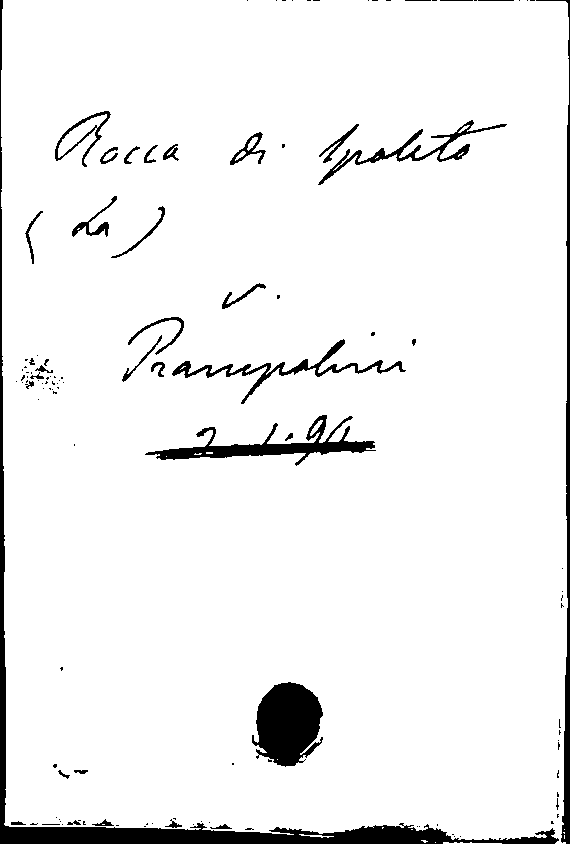 Rocca di Spoleto
(La)
v.
Prampolini